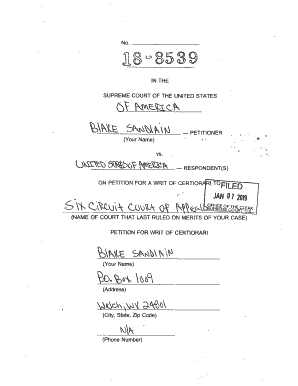 No.
18-8539
IN THE
SUPREME COURT OF THE UNITED STATES
OF AMERICA
BLAKE SANDLAIN — PETITIONER
(Your Name)
vs.
UNITED STATES OF AMERICA — RESPONDENT(S)
ON PETITION FOR A WRIT OF CERTIORARI TO
FILED
JAN 07 2019
OFFICE OF THE CLERK
Six Circuit Court of Appeals
(NAME OF COURT THAT LAST RULED ON MERITS OF YOUR CASE)
PETITION FOR WRIT OF CERTIORARI
BLAKE SANDLAIN
(Your Name)
P.O. Box 1009
(Address)
Welch, WV 24801
(City, State, Zip Code)
N/A
(Phone Number)